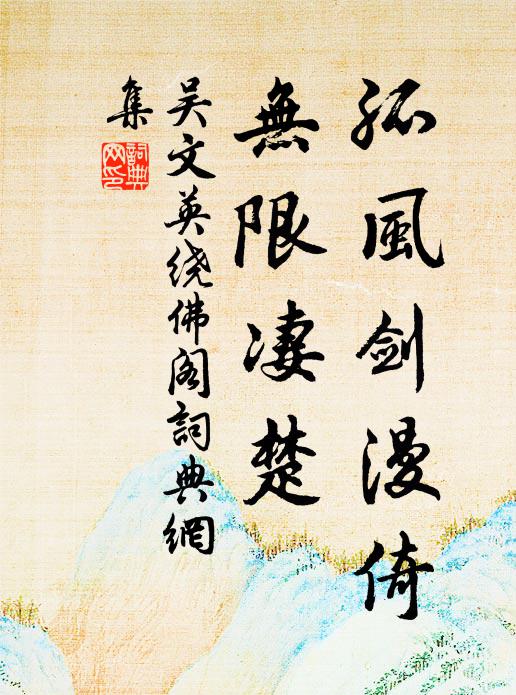 孤風剑漫倚
無限凄楚
吴文英绕佛阁詞典網
集
詞典網印